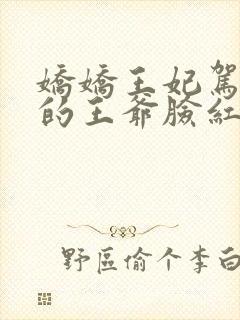 嬌嬌王妃駕
的王爺臉紅
野區偷个李白